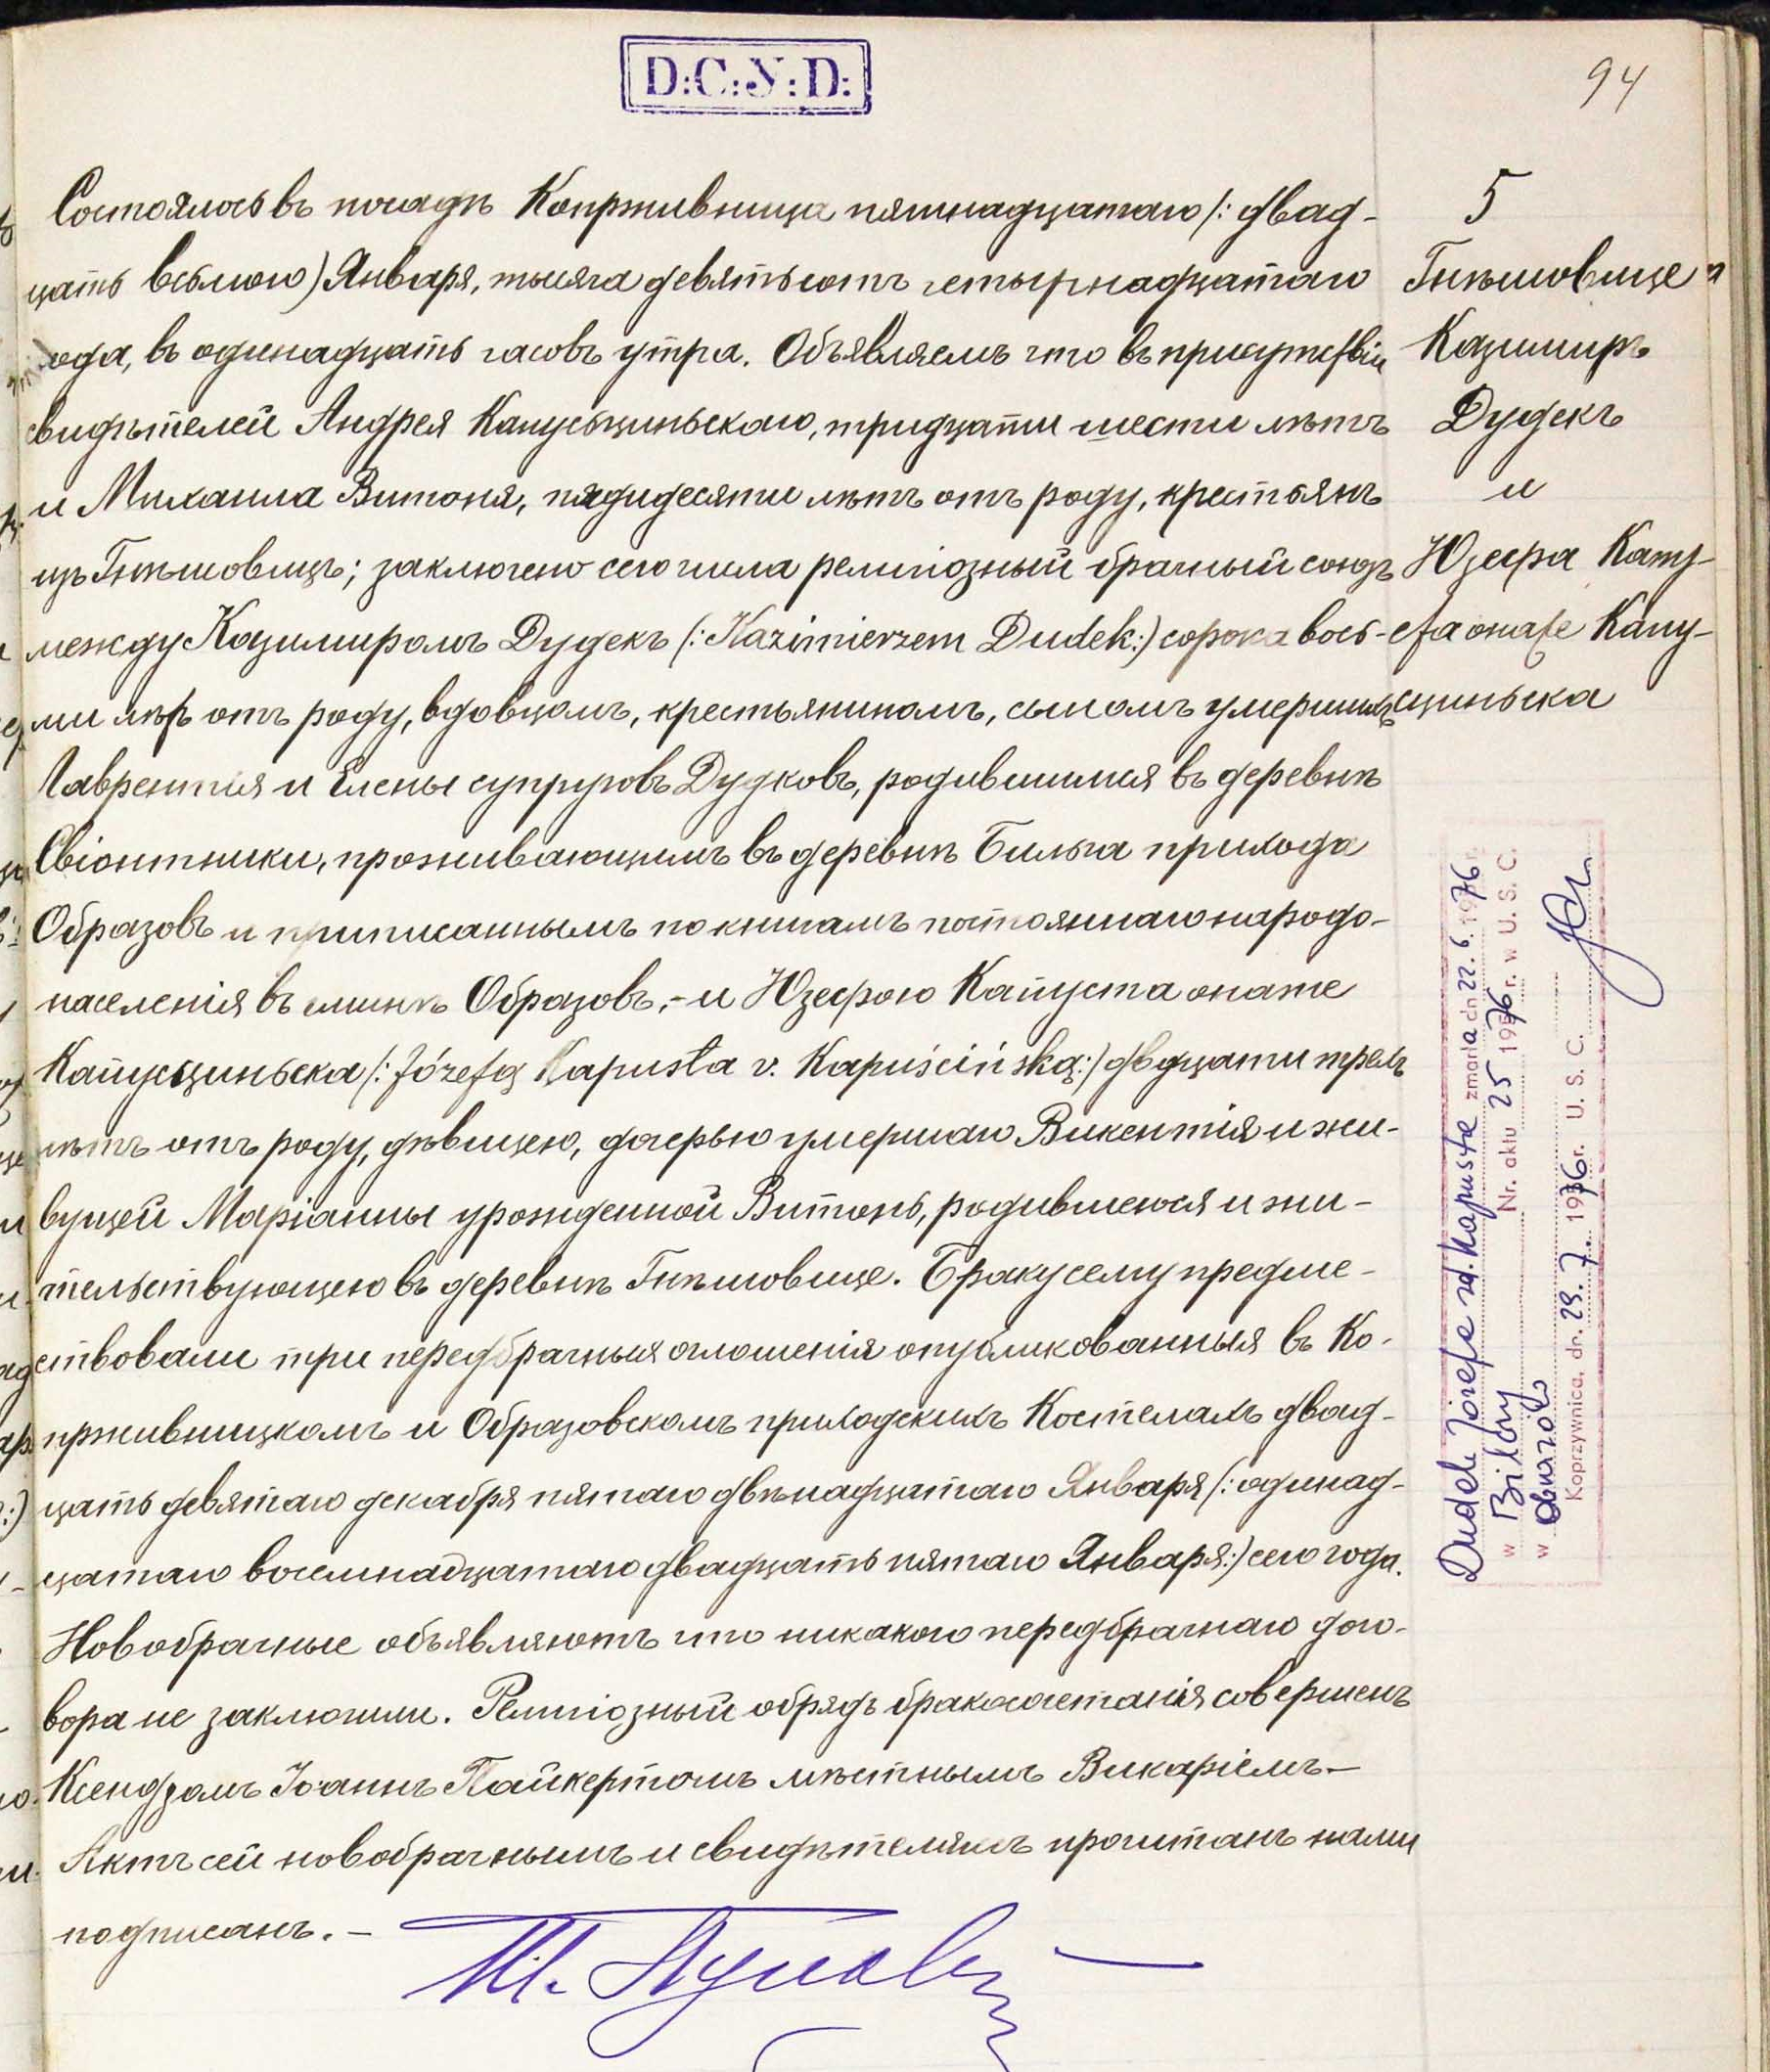 D:С:У:D:
94
Состоялось въ посадѣ Копрживница пятнадцатаго /: двад-
цать восьмого) Января, тысяча девятьсотъ четырнадцатаго
года, въ одинадцать часовъ утра. Объявляемъ что въ присутствіи
свидѣтелей Андрея Капусьциньскаго, тридцати шести лѣтъ
и Михаила Витоня, пядидесяти лѣтъ отъ роду, крестьянъ
изъ Гнѣшовицъ; заключено сего числа религіозный брачный союзъ
между Казимиромъ Дудекъ (: Kazimierzem Dudek:) сорока вось-
ми лѣтъ отъ роду, вдовцомъ, крестьяниномъ, сыномъ умершихъ
Лаврентія и Елены супруговъ Дудковъ, родившимся въ деревнѣ
Свіонтники, проживающимъ въ деревнѣ Бильча прихода
Образовъ и приписаннымъ по книгамъ постояннаго народо-
населенія въ гминѣ Образовъ,- и Юзефою Капуста онаже
Капусциньска /: Józefą Kapusta v. Kapuścińską:/ двдцати трехъ
лѣтъ отъ роду, дѣвицею, дочерью умершаго Викентія и жи-
вущей Маріанны урожденной Витонь, родившеюся и жи-
тельствующею въ деревнѣ Гнѣшовице. Браку сему предше-
ствовали три передбрачныя оглошенія опубликованныя въ Ко-
прживницкомъ и Образовскомъ приходскихъ Костелахъ двад-
цать девятаго декабря пятаго двѣнадцатаго Января /: одинад-
цатаго восемнадцатаго двадцать пятаго Января:/ сего года.
Новобрачные объявляютъ что никакого передбрачнаго дого-
вора не заключили. Религіозный обрядъ бракосочетанія совершенъ
Ксендзомъ Іоаннъ Пайкертомъ мѣстнымъ Викаріемъ.—
Актъ сей новобрачнымъ и свидѣтелямъ прочитанъ нами
подписанъ.—
5
Гнѣшовице
Казимиръ
Дудекъ
и
Юзефа Капу-
ста онаже Капу-
сциньска
Dudek Józefa zd. Kapusta zmarła dn 22.6.1976 r.
w Bilczy Nr. aktu 25 1976 r. w U. S. C.
w Obrazów
Koprzywnica, dn. 29. 7. 1976 r. U. S. C.